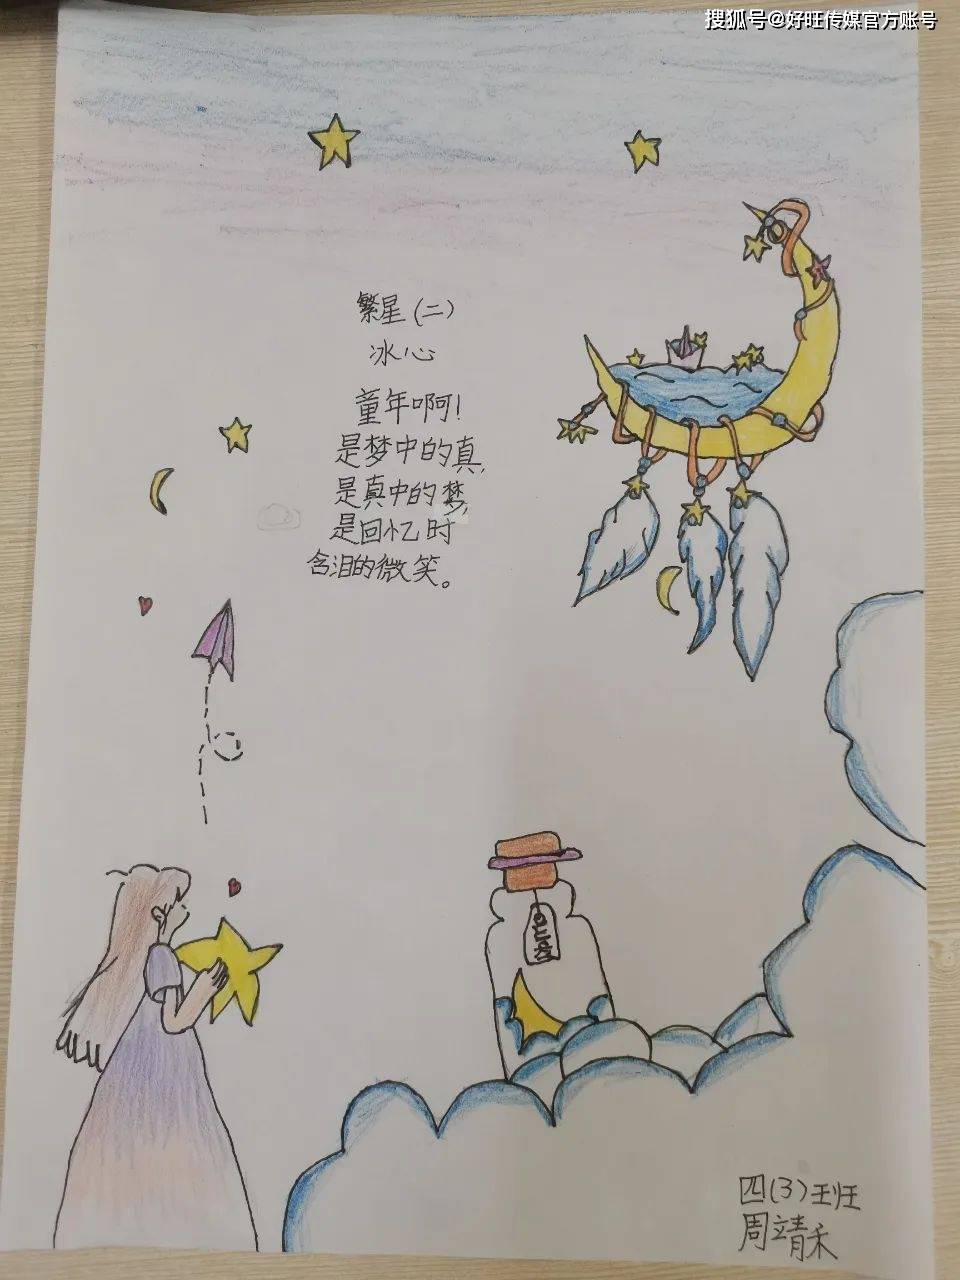 搜狐号@好旺传媒官方账号
繁星(二)
冰心
童年啊!
是梦中的真,
是真中的梦,
是回忆时
含泪的微笑。
四(3)班
周靖禾